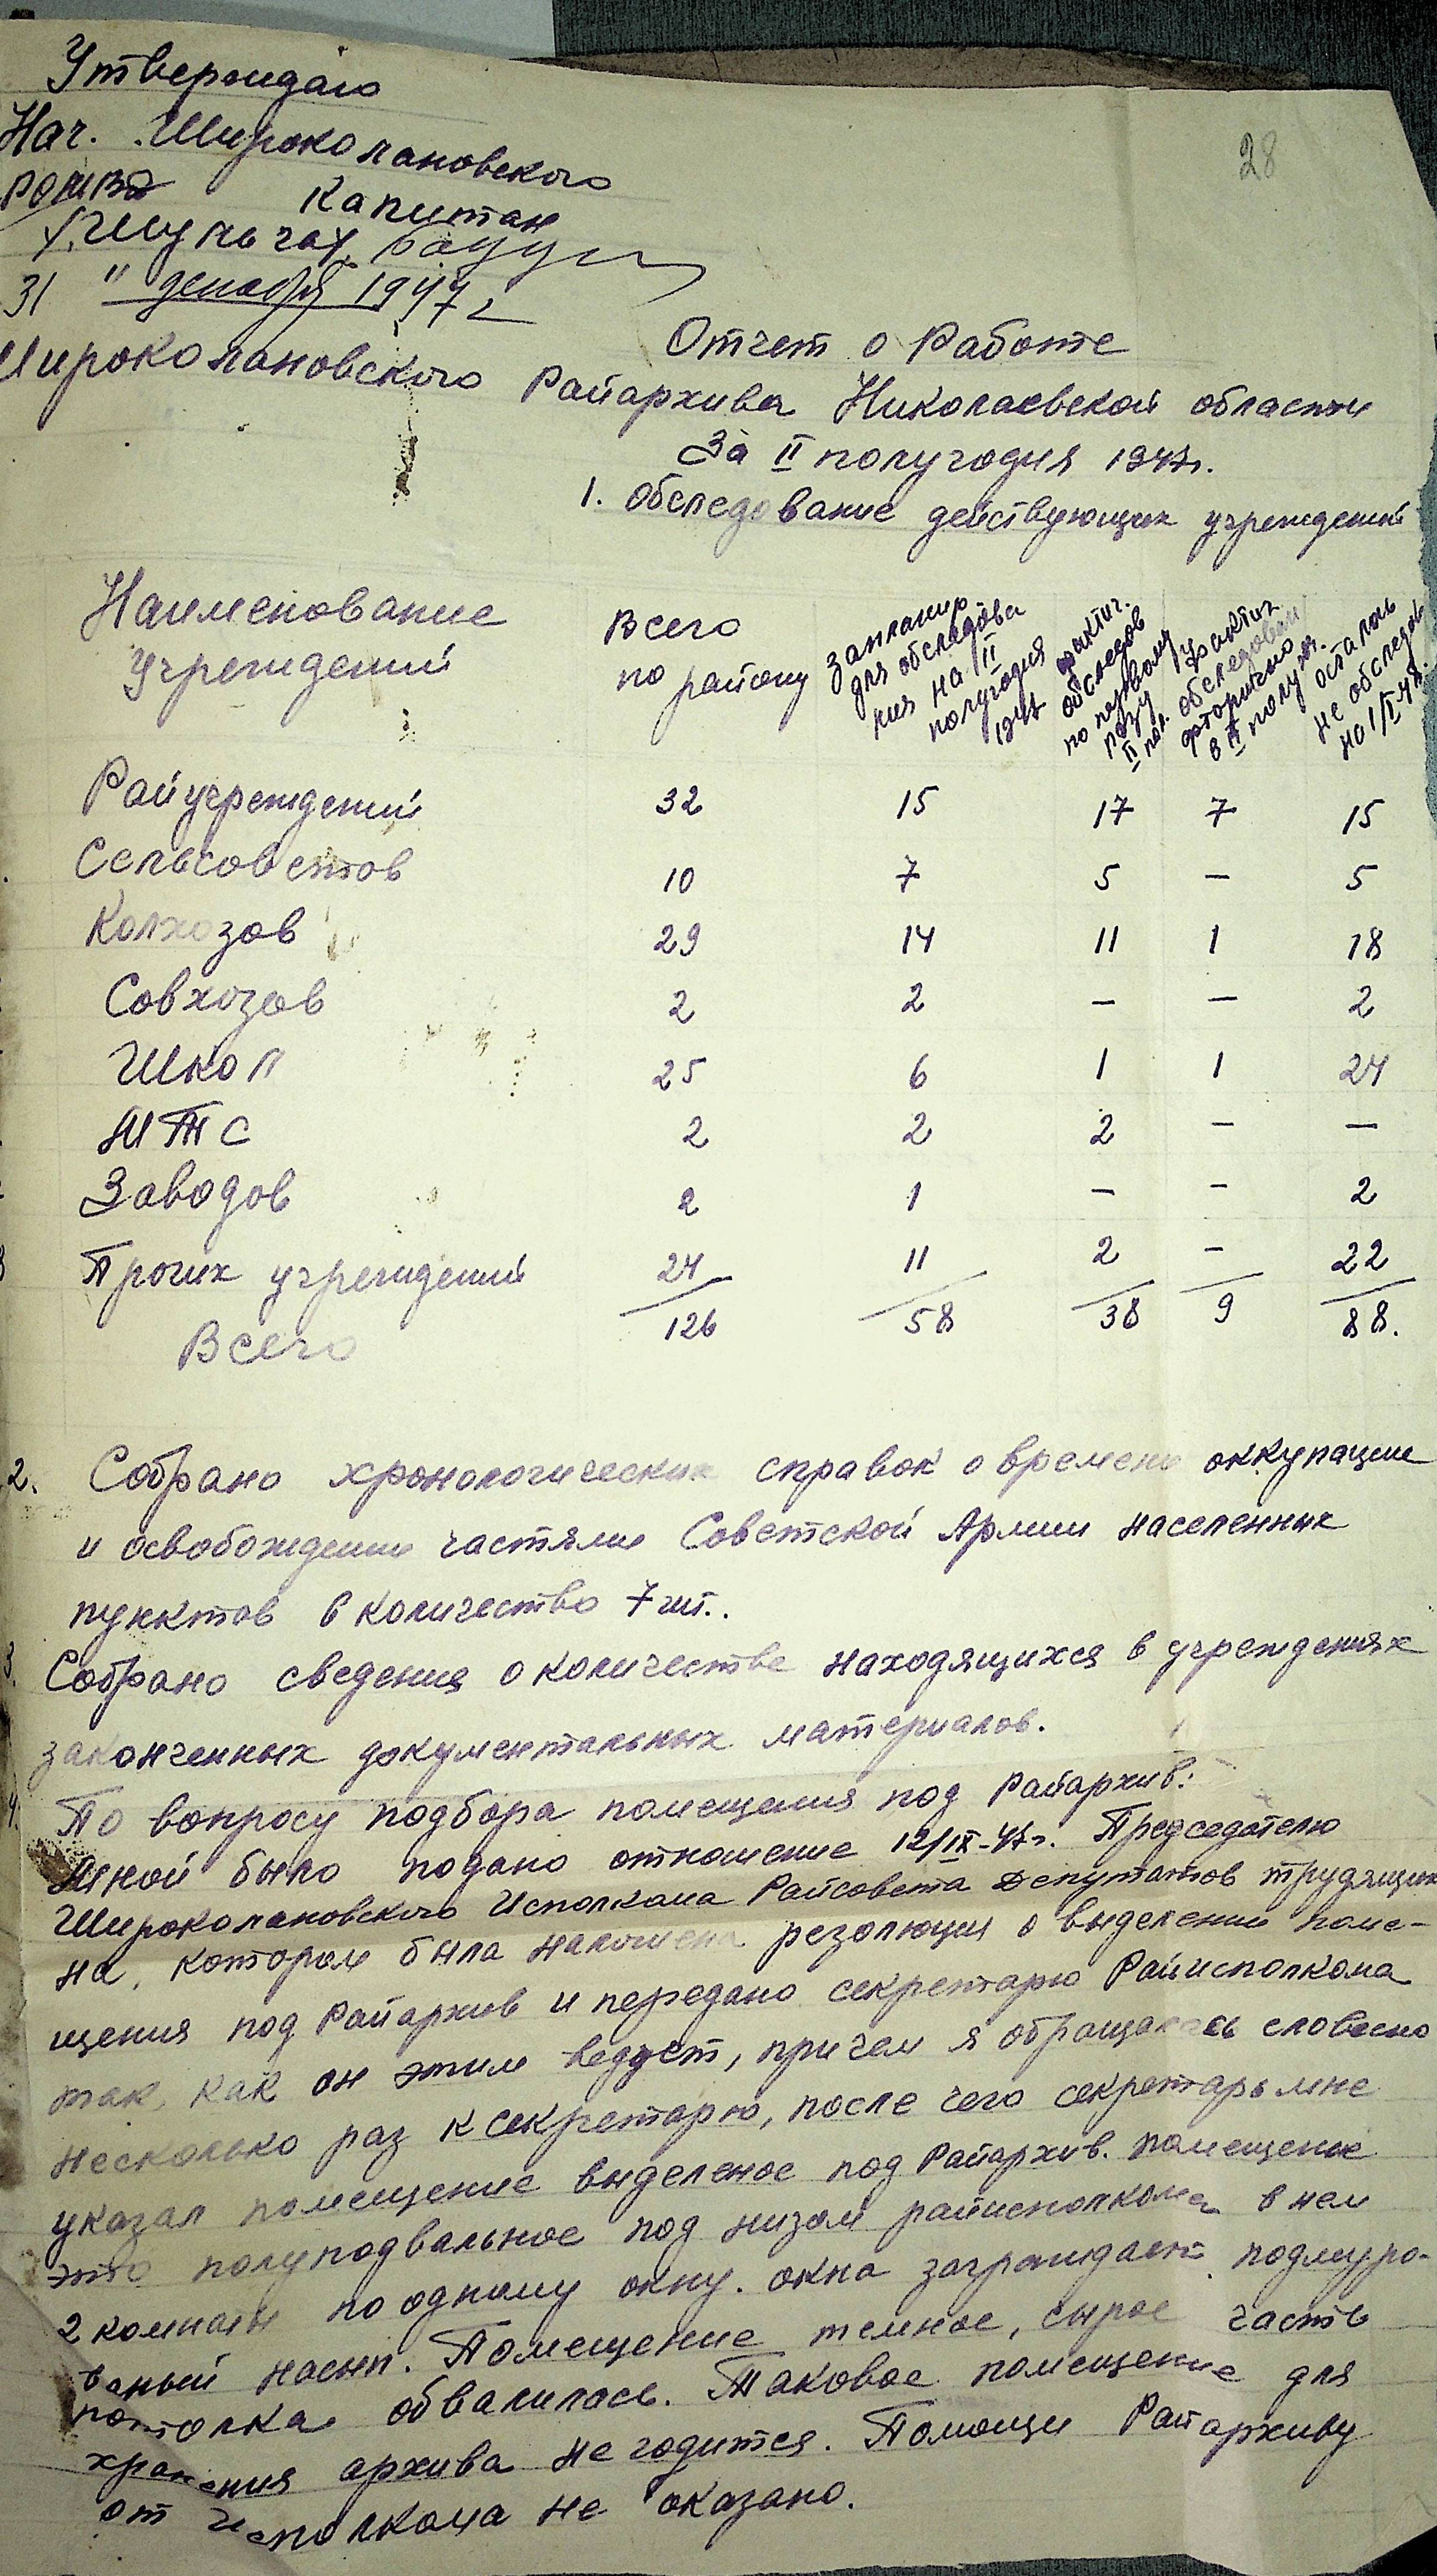 28
Утверждаю
Нач. Широколановского
РОМВД Капитан
31 " декабря 1947 г
Отчет о Работе
Широколановского Райархива Николаевской области
За II полугодия 1947г.
1. Обследование действующих учреждений
Наименование Учреждений
Всего по району
запланир для обследова ния на II полугодия 1947
фактич. обследов по первому разу II пол.
фактич обследован вторично в II полуг.
осталось не обследов на 1/I 48.
Райучреждений 32 15 17 7 15
Сельсоветов 10 7 5 — 5
Колхозов 29 14 11 1 18
Совхозов 2 2 — — 2
Школ 25 6 1 1 24
МТС 2 2 2 — —
Заводов 2 1 — - 2
Прочих учреждений 24 11 2 - 22
Всего 126 58 38 9 88.
2. Собрано хронологических справок о времени оккупации
и освобождении частями Советской Армии населенных
пунктов в количество 7 шт..
3. Собрано сведения о количестве находящихся в учреждениях
законченных документальных материалов.
4. По вопросу подбора помещения под Райархив:
Мной было подано отношение 12/IX-47г. Председателю
Широколановского Исполкома Райсовета Депутатов трудящих
на, котором была наложена резолюция о выделении поме-
щения под Райархив и передано секретарю Райисполкома
так, как он этим ведует, причем я обращалась словесно
несколько раз к секретарю, после чего секретарь мне
указал помещение выделеное под Райархив. помещение
это полуподвальное под низом райисполкома в нем
2 комнаты по одному окну. окна заграждает подмуро-
ваный насып. Помещение темное, сырое часть
потолка обвалилась. Таковое помещение для
хранения архива не годится. Помощи Райархиву
от Исполкома не оказано.